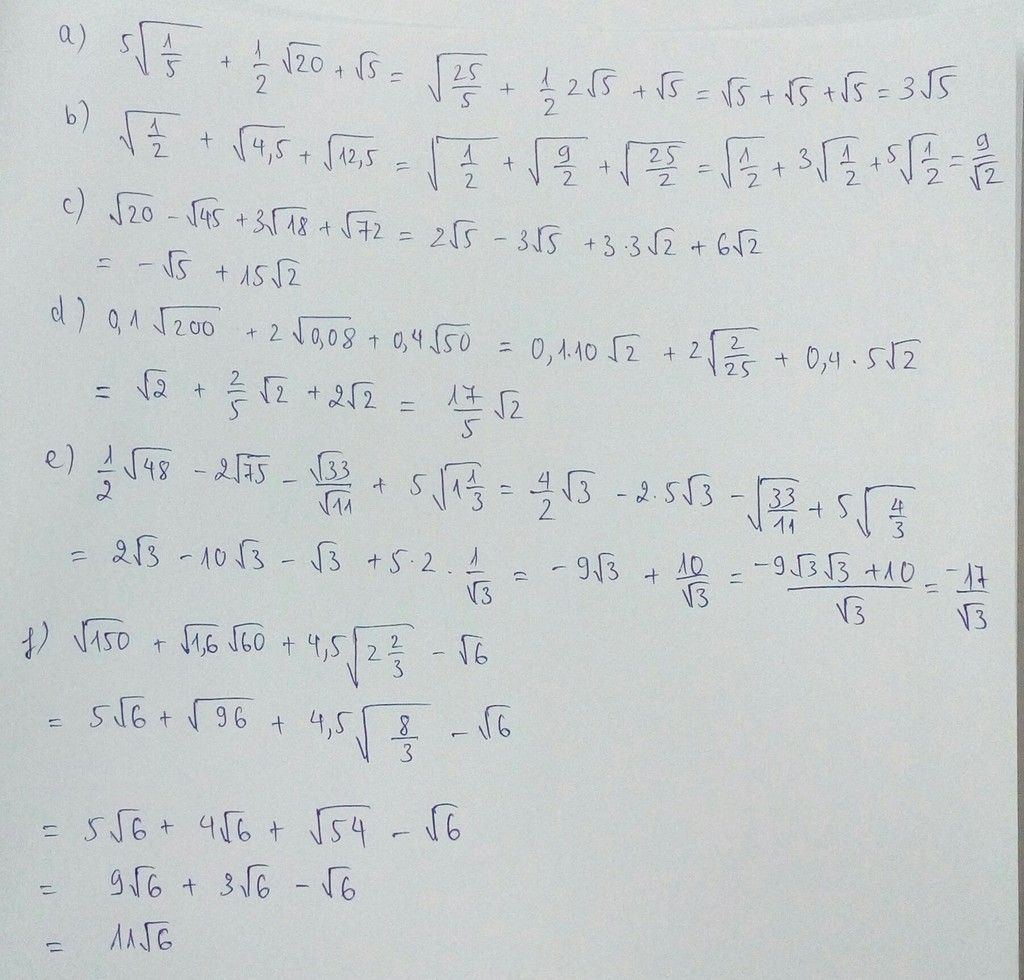 a) 5√(1/5) + 1/2 √20 + √5 = √(25/5) + 1/2 2√5 + √5 = √5 + √5 + √5 = 3√5
b) √(1/2) + √4,5 + √12,5 = √(1/2) + √(9/2) + √(25/2) = √(1/2) + 3√(1/2) + 5√(1/2) = 9/√2
c) √20 - √45 + 3√18 + √72 = 2√5 - 3√5 + 3·3√2 + 6√2
= -√5 + 15√2
d) 0,1√200 + 2√0,08 + 0,4√50 = 0,1·10√2 + 2√(2/25) + 0,4·5√2
= √2 + 2/5 √2 + 2√2 = 17/5 √2
e) 1/2 √48 - 2√75 - √33/√11 + 5√(1 1/3) = 4/2 √3 - 2·5√3 - √(33/11) + 5√(4/3)
= 2√3 - 10√3 - √3 + 5·2·1/√3 = -9√3 + 10/√3 = (-9√3√3 + 10)/√3 = -17/√3
f) √150 + √1,6 √60 + 4,5√(2 2/3) - √6
= 5√6 + √96 + 4,5√(8/3) - √6
= 5√6 + 4√6 + √54 - √6
= 9√6 + 3√6 - √6
= 11√6